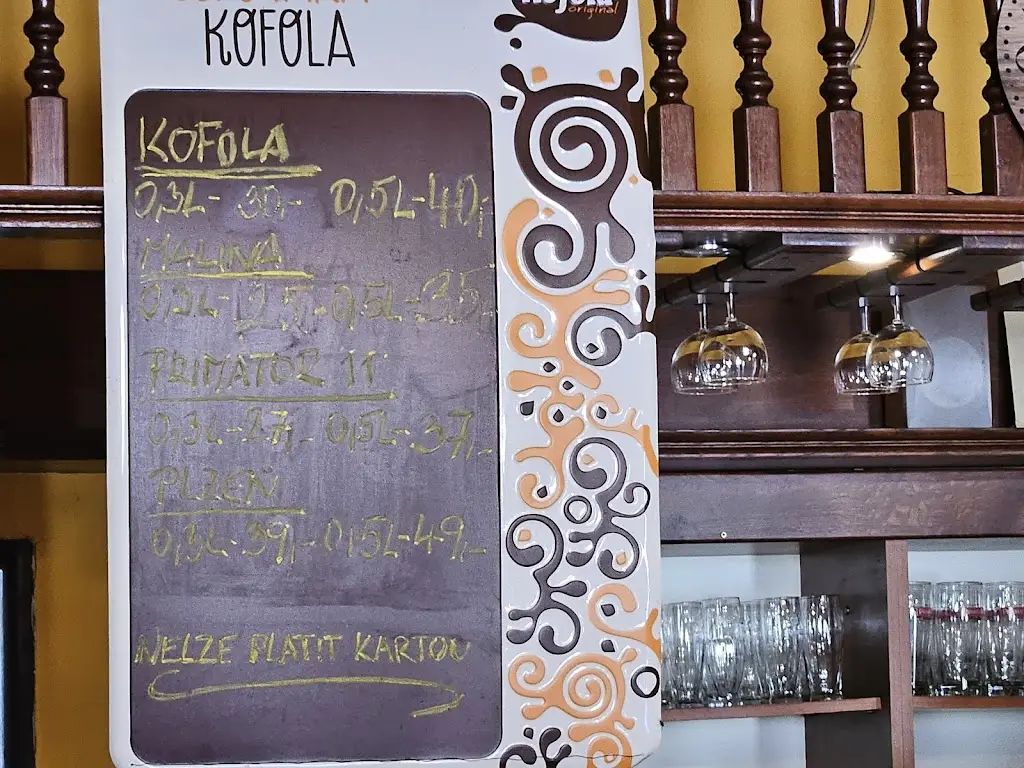 KOFOLA
Kofola
original
KOFOLA
0,3L- 30,- 0,5L-40,-
MALINA
0,3L- 25,- 0,5L-35,-
PRIMATOR 11°
0,3L-27,- 0,5L-37,-
PLZEŇ
0,3L-39,- 0,5L-49,-
NELZE PLATIT KARTOU